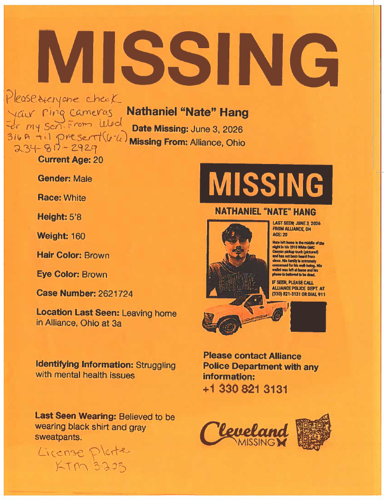 MISSING
Please everyone check
your ring cameras
for my son from Wed
3:16A til present (6/6)
Nathaniel “Nate” Hang
Date Missing: June 3, 2026
Missing From: Alliance, Ohio
Current Age: 20
Gender: Male
Race: White
Height: 5'8
Weight: 160
Hair Color: Brown
Eye Color: Brown
Case Number: 2621724
Location Last Seen: Leaving home
in Alliance, Ohio at 3a
Identifying Information: Struggling
with mental health issues
Last Seen Wearing: Believed to be
wearing black shirt and gray
sweatpants.
License Plate
MISSING
NATHANIEL "NATE" HANG
LAST SEEN: JUNE 3, 2026
FROM ALLIANCE, OH
AGE: 20
IF SEEN, PLEASE CALL
ALLIANCE POLICE DEPT. AT
(330) 821-3131 OR DIAL 911
Please contact Alliance
Police Department with any
information:
+1 330 821 3131
Cleveland
MISSING